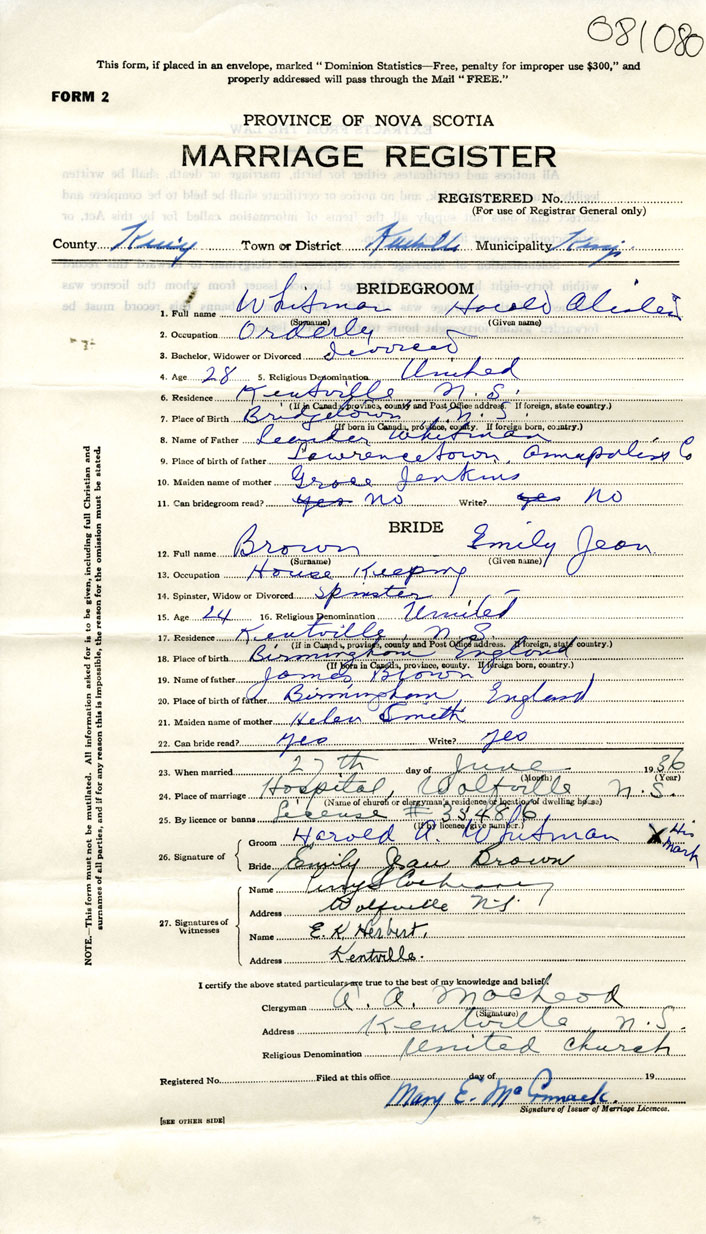 081080
This form, if placed in an envelope, marked "Dominion Statistics—Free, penalty for improper use $300," and
properly addressed will pass through the Mail "FREE."
FORM 2
PROVINCE OF NOVA SCOTIA
MARRIAGE REGISTER
REGISTERED No.
(For use of Registrar General only)
County Kings Town or District Kentville Municipality Kings
BRIDEGROOM
1. Full name Whitman Harold
(Surname) (Given name)
2. Occupation Orderly
3. Bachelor, Widower or Divorced Divorced
4. Age 28 5. Religious Denomination United
6. Residence Kentville N.S.
(If in Canada, province, county and Post Office address. If foreign, state country.)
7. Place of Birth Bridgetown N.S.
(If born in Canada, province, county. If foreign born, country.)
8. Name of Father Leander Whitman
9. Place of birth of father Lawrencetown, Annapolis Co
10. Maiden name of mother Grace Jenkins
11. Can bridegroom read? yes No Write? yes No
BRIDE
12. Full name Brown Emily Jean
(Surname) (Given name)
13. Occupation House Keeping
14. Spinster, Widow or Divorced Spinster
15. Age 24 16. Religious Denomination United
17. Residence Kentville, N.S.
(If in Canada, province, county and Post Office address. If foreign, state country.)
18. Place of birth Birmingham England
(If born in Canada, province, county. If foreign born, country.)
19. Name of father James Brown
20. Place of birth of father Birmingham England
21. Maiden name of mother Helen Smith
22. Can bride read? yes Write? yes
23. When married 27th day of June 1936
(Month) (Year)
24. Place of marriage Hospital, Wolfville, N.S.
(Name of church or clergyman's residence or location of dwelling house)
25. By licence or banns License # 35486
(If by licence, give number.)
26. Signature of Groom Harold A. Whitman X His mark
Bride Emily Jean Brown
27. Signatures of Witnesses
Name Cochrane
Address Wolfville N.S.
Name E. K. Herbert,
Address Kentville.
I certify the above stated particulars are true to the best of my knowledge and belief.
Clergyman A. A. MacLeod
(Signature)
Address Kentville, N.S.
Religious Denomination United Church
Registered No. Filed at this office day of 19
Mary E. McCormack.
Signature of Issuer of Marriage Licences.
[SEE OTHER SIDE]
NOTE.—This form must not be mutilated. All information asked for is to be given, including full Christian and
surnames of all parties, and if for any reason this is impossible, the reason for the omission must be stated.